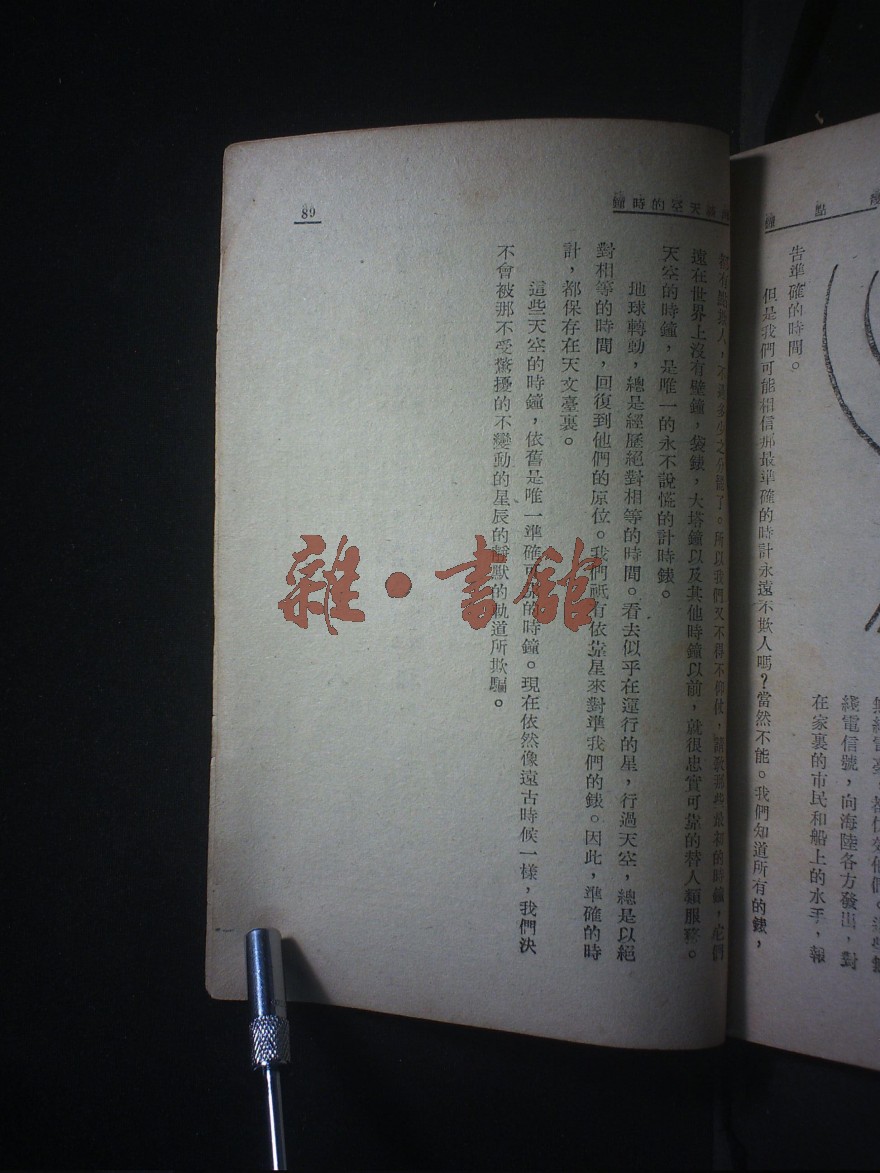 點
鐘
無線電臺
綫電信號，向海陸各方發出，對
在家裏的市民和船上的水手，報
告準確的時間。
但是我們可能相信那最準確的時計永遠不欺人嗎？當然不能。我們知道所有的錶，
天空的時鐘
89
所以我們又不得不仰仗，
遠在世界上沒有壁鐘，袋錶，大塔鐘以及其他時鐘以前，就很忠實可靠的替人類服務。
天空的時鐘，是唯一的永不說慌的計時錶。
地球轉動，總是經歷絕對相等的時間。看去似乎在運行的星，行過天空，總是以絕
對相等的時間，回復到他們的原位。我們祗有依靠星來對準我們的錶。因此，準確的時
計，都保存在天文臺裏。
這些天空的時鐘，依舊是唯一準確可靠的時鐘。現在依然像遠古時候一樣，我們決
不會被那不受驚擾的不變動的星辰的靜默的軌道所欺騙。
雜·書館